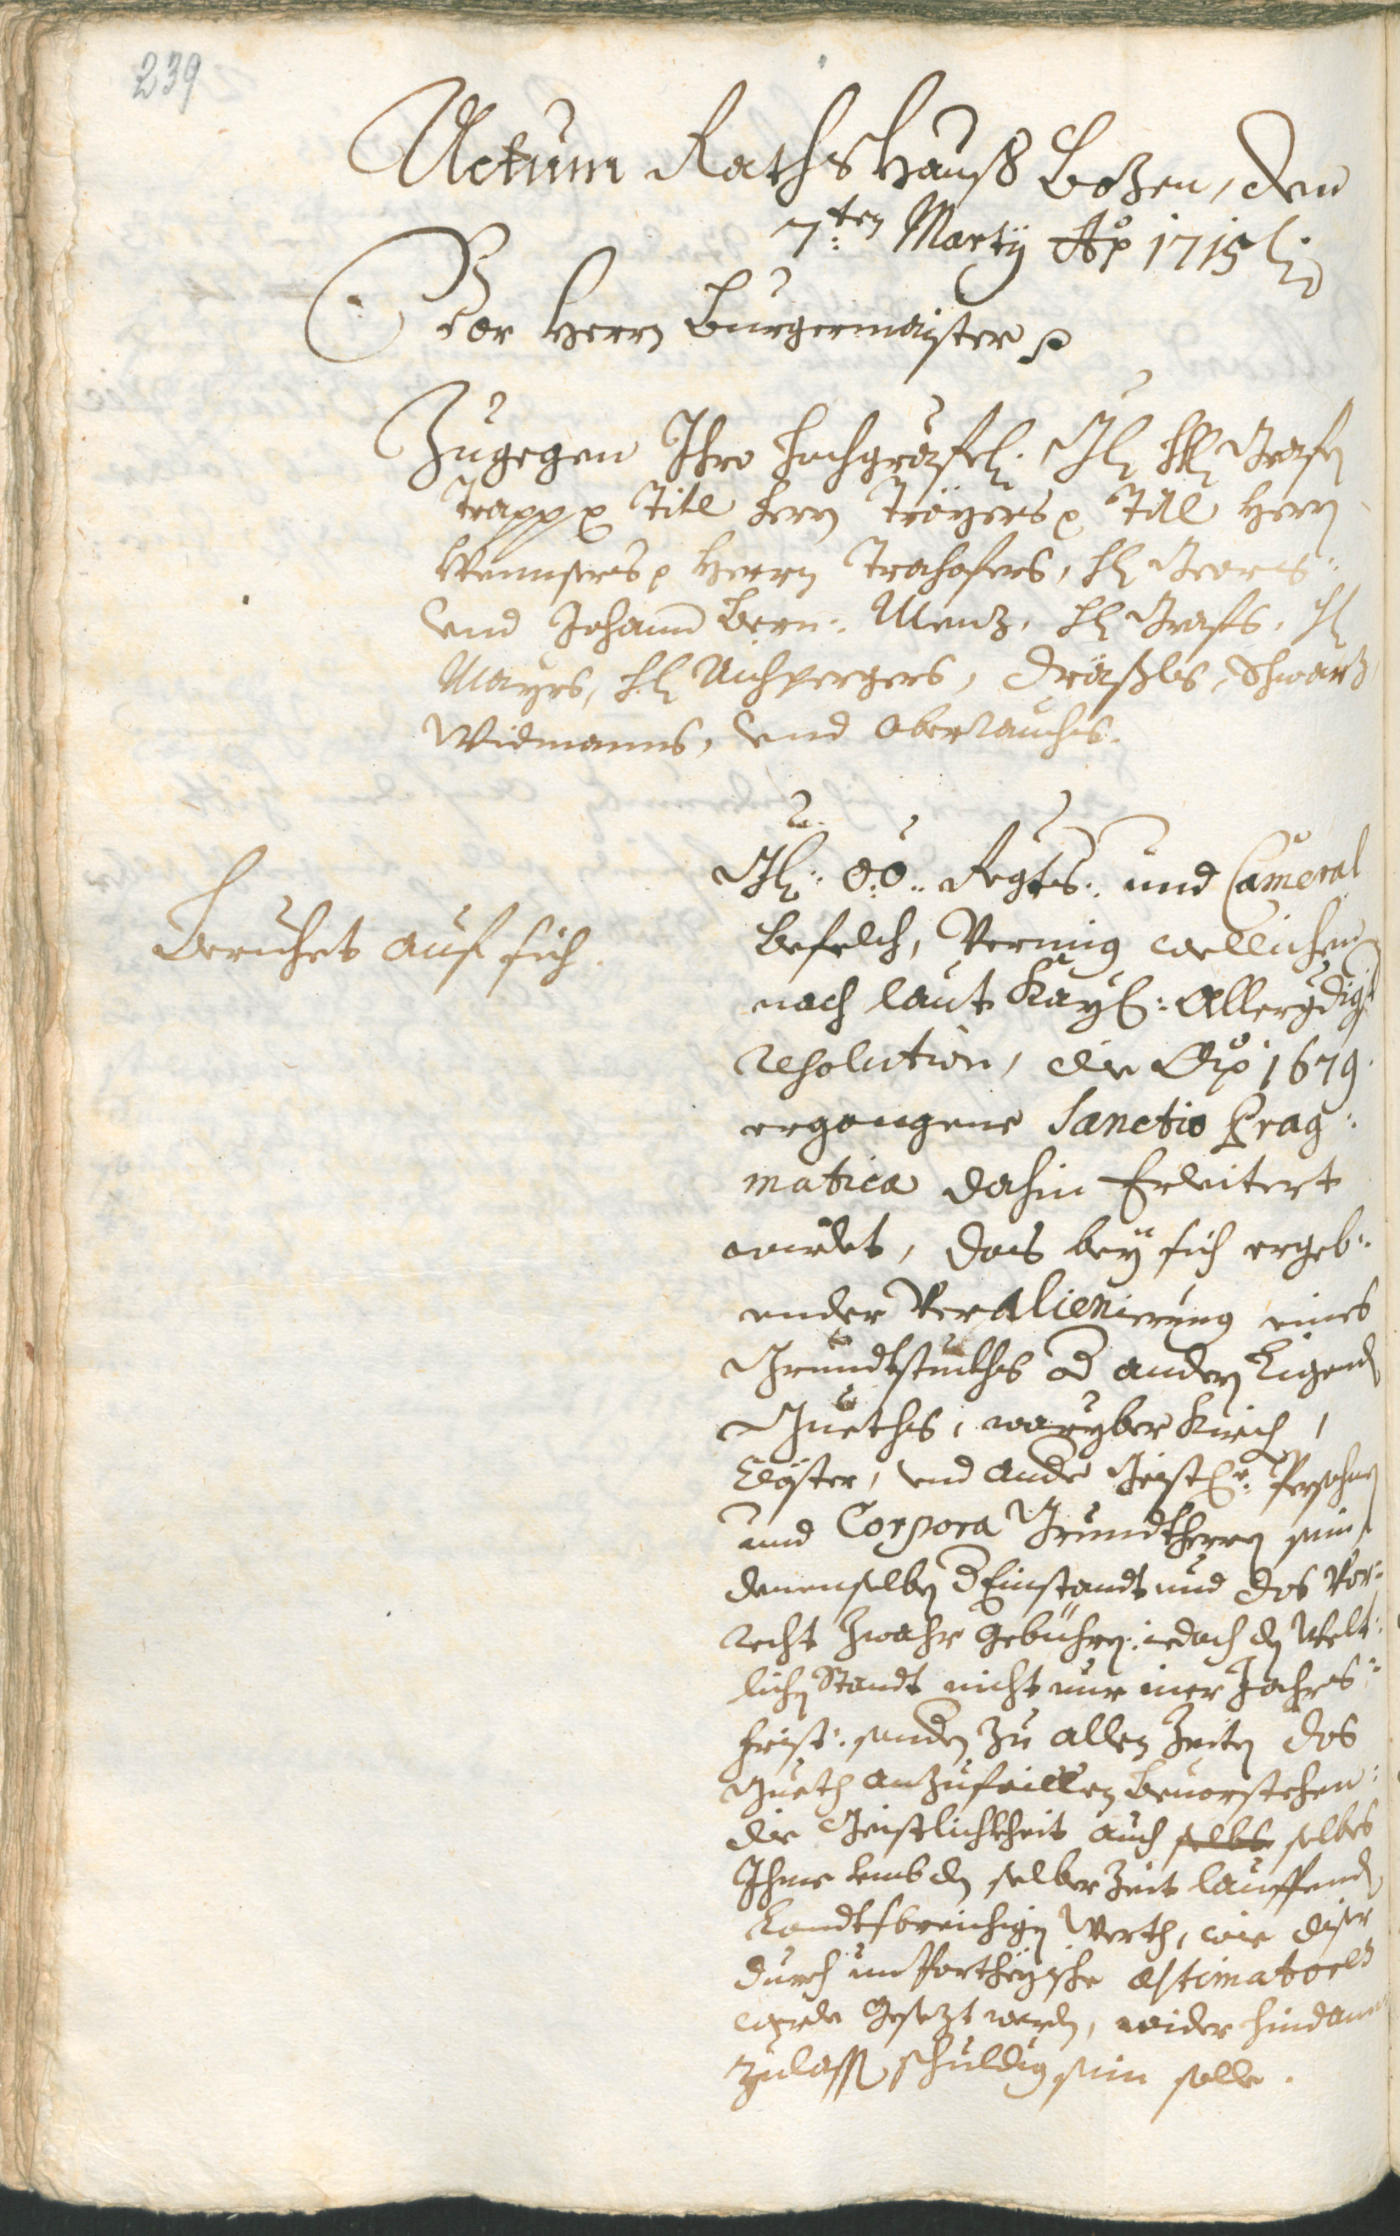 239
Actum Rathshauß Bozen, den
7:ten Marty Ao 1715
Vor Herrn Burgermaister
Zugegen Ihro hochgräfl: Gl: Hl Grafen
Trapp Titl Herrn Tröyers Titl Herrn
Herrn Trahofers, Hl Georg
und Johann Bern: Menz, Hl Grafs, Hl
Mayrs, Hl Aichpergers, Dräxls, Schwarz
Widmanns, und Oberrauchs.
Beruhet auf sich.
O:Ö: Regts: und Cameral
Befelch, Vermig wellichen
nach laut Kayl: Allergdigst
resolution, die Ao 1679
ergangene Sanctio Prag:
matica dahin Erleitert
wirdet, das bey sich ergeb:
ender Veralienierung eines
Grundtstuckhs od andern Ligend
Gueths, waryber Kirch,
Clöster, und ande Geistl: Persohnen
und Corpora Grundtherrn sein
denenselben d Einstandt und das Vor:
recht zwahr gebühren: iedoch dem Welt:
lichen Standt nicht nur iner Jahrs:
frist: sondern zu allen Zeiten das
Gueth anzufaillen bevorstehen:
die Geistlichkheit auch selbs selbes
Ihme umb den selber Zeit lauffend
Landtsbreichigen Werth, wie diser
durch unParteyische æstimatores
werde gesezt werden, wider hindan
zulassen schuldig sein solle.